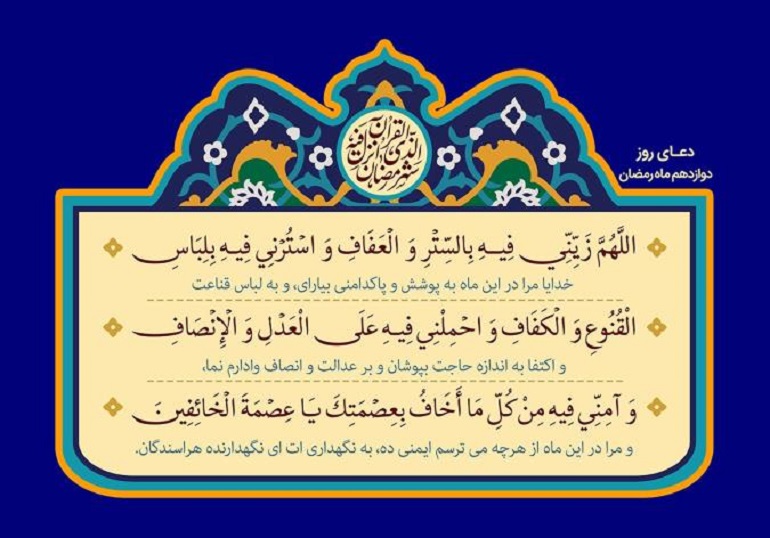 شهر رمضان الذی انزل فیه القرآن
دعای روز
دوازدهم ماه رمضان
اللَّهُمَّ زَيِّنِّي فِيهِ بِالسِّتْرِ وَ الْعَفَافِ وَ اسْتُرْنِي فِيهِ بِلِبَاسِ
خدایا مرا در این ماه به پوشش و پاکدامنی بیارای، و به لباس قناعت
الْقُنُوعِ وَ الْكَفَافِ وَ احْمِلْنِي فِيهِ عَلَى الْعَدْلِ وَ الْإِنْصَافِ
و اکتفا به اندازه حاجت بپوشان و بر عدالت و انصاف وادارم نما،
وَ آمِنِّي فِيهِ مِنْ كُلِّ مَا أَخَافُ بِعِصْمَتِكَ يَا عِصْمَةَ الْخَائِفِينَ
و مرا در این ماه از هرچه می ترسم ایمنی ده، به نگهداری ات ای نگهدارنده هراسندگان.